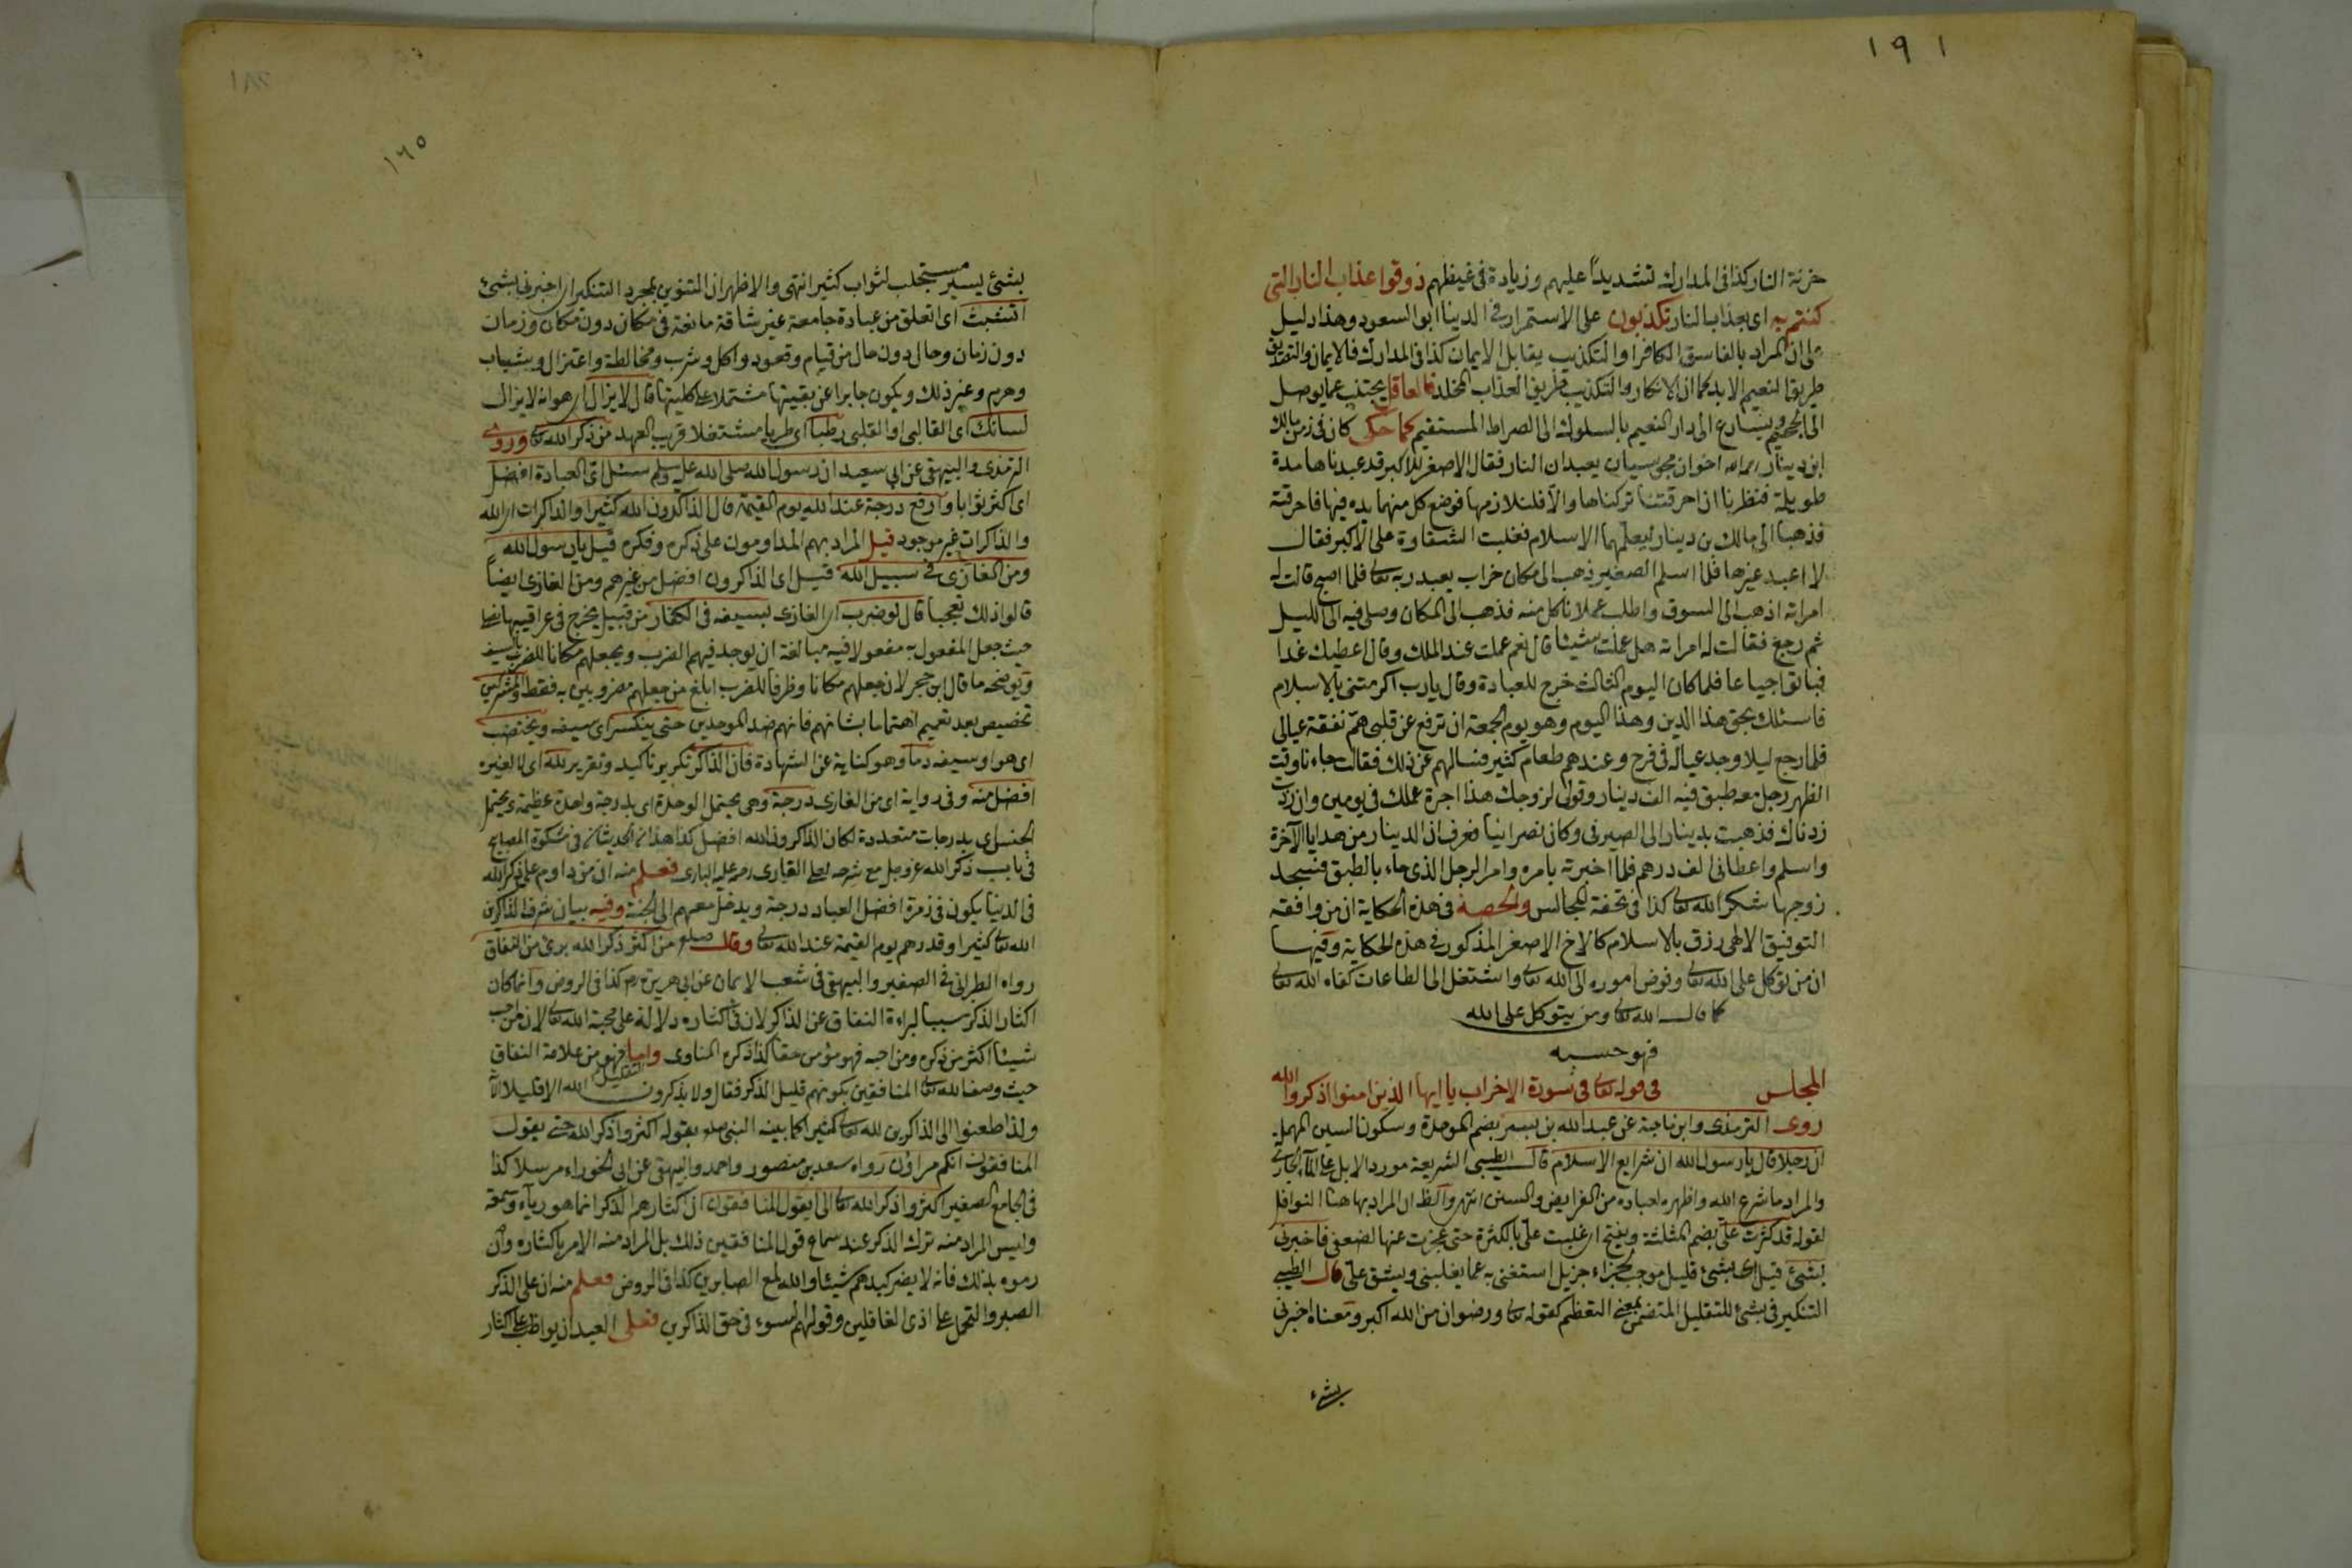 ١٩١
خزنة النار كذا فى المدارك تشديداً عليهم وزيادة فى غيظهم ذوقوا عذاب النار التى
كنتم به اى بعذاب النار تكذبون على الاستمرار فى الدينا ابو السعود وهذا دليل
على ان المراد بالفاسق الكافر او التكذيب يقابل الايمان كذا فى المدارك فالايمان والتصديق
طريق النعيم الابد كما ان الانكار والتكذيب طريق العذاب المخلد فالعاقل يجتنب عما يوصل
الى الجحيم ويسارع الى دار النعيم بالسلوك الى الصراط المستقيم كما حكى كان فى زمن مالك
ابن دينار رحمه الله اخوان مجوسيان يعبدان النار فقال الاصغر للاكبر قد عبدناها مدة
طويلة فنظرنا ان احرقتنا تركناها والا فلنلازمها فوضع كل منهما يده فيها فاحرقته
فذهبا الى مالك بن دينار ليعلمهما الاسلام فغلبت الشقاوة على الاكبر فقال
لا اعبد غيرها فلما اسلم الصغير ذهب الى مكان خراب يعبد ربه تعالى فلما اصبح قالت له
امراته اذهب الى السوق واطلب عملا ناكل منه فذهب الى المكان وصلى فيه الى الليل
ثم رجع فقالت له امراته هل عملت شيئا قال نعم عملت عند الملك وقال اعطيك غدا
فباتوا جياعا فلما كان اليوم الثالث خرج للعبادة وقال يارب اكرمتنى بالاسلام
فاسئلك بحق هذا الدين وهذا اليوم وهو يوم الجمعة ان ترفع عن قلبى هم نفقة عيالى
فلما رجع ليلا وجد عياله فى فرح وعندهم طعام كثير فسالهم عن ذلك فقالت جاءنا وقت
الظهر رجل معه طبق فيه الف دينار وقولى لزوجك هذا اجرة عملك فى يومين وان زدت
زدناك فذهبت بدينار الى الصيرفى وكان نصرانيا فعرف ان الدينار من هدايا الآخرة
واسلم واعطانى الف درهم فلما اخبرته بامره وامر الرجل الذى جاء بالطبق فسجد
زوجها شكر الله تعالى كذا فى تحفة المجالس والحصة فى هذه الحكاية ان من وافقه
التوفيق الالهى رزق بالاسلام كالاخ الاصغر المذكور فى هذه الحكاية وفيها
ان من توكل على الله تعالى وفوض اموره الى الله تعالى واشتغل الى الطاعات كفاه الله تعالى
كما قال الله تعالى ومن يتوكل على الله
فهو حسبه
المجلس فى قوله تعالى فى سورة الاحزاب يا ايها الذين امنوا اذكروا الله
روى الترمذى وابن ماجة عن عبد الله بن بسر بضم الموحدة وسكون السين المهملة
ان رجلا قال يا رسول الله ان شرايع الاسلام قال الطيبى الشريعة مورد الابل على الماء الجارى
والمراد ما شرع الله واظهره لعباده من الفرايض والسنن انتهى والظ ان المراد بها هنا النوافل
لقوله قد كثرت على بضم المثلثة وبفتح اى غلبت على بالكثرة حتى عجزت عنها لضعفى فاخبرنى
بشئ قيل اى بشئ قليل موجب لجزاء جزيل استغنى به عما يغلبنى ويشق على قال الطيبى
التنكير فى بشئ للتقليل المتضمن بمعنى التعظيم كقوله تعالى ورضوان من الله اكبر ومعناه اخبرنى
بشئ
١٨٢
١٦٥
بشئ يسير مستجلب لثواب كثير انتهى والاظهر ان التنوين لمجرد التنكير اى اخبرنى بشئ
اتشبث اى اتعلق من عبادة جامعة غير شاقة مانعة فى مكان دون مكان وزمان
دون زمان وحال دون حال من قيام وقعود واكل وشرب ومخالطة واعتزال وبشباب
وهرم وغير ذلك ويكون جابرا عن بقيتها مشتملا على كليتها قال لا يزال اى هو انه لا يزال
لسانك اى القالبى او القلبى رطبا اى طريا مشتغلا قريب العهد من ذكر الله تعالى وروى
الترمذى والبيهقى عن ابى سعيد ان رسول الله صلى الله عليه وسلم سئل اى العبادة افضل
اى اكثر ثوابا وارفع درجة عند الله يوم القيمة قال الذاكرون الله كثيرا والذاكرات اى الله
والذاكرات غير موجود قيل المراد بهم المداومون على ذكره وفكره قيل يا رسول الله
ومن الغازى فى سبيل الله قيل اى الذاكرون افضل من غيرهم ومن الغازى ايضاً
قالوا ذلك تعجبا قال لو ضرب اى الغازى بسيفه فى الكفار من قبيل يجرح فى عراقيبها نصلى
حيث جعل المفعول به مفعولا فيه مبالغة ان يوجد فيهم الضرب ويجعلهم مكانا للضرب بالسيف
ويوضحه ما قال ابن حجر لان جعلهم مكانا وظرفا للضرب ابلغ من جعلهم مضروبين به فقط والمشركين
تخصيص بعد تعميم اهتماما بشانهم فانهم ضد الموحدين حتى ينكسر اى سيفه ويختضب
اى هو او سيفه دما وهو كناية عن الشهادة فان الذاكر تكرير تاكيد وتقرير لله اى لا لغيره
افضل منه وفى رواية اى من الغازى درجة وهى يحتمل الوحدة اى بدرجة واحدة عظيمة ويحتمل
الجنس اى بدرجات متعددة لكان الذاكرون الله افضل كذا هذان الحديثان فى مشكوة المصابح
فى باب ذكر الله عز وجل مع شرحه لعلى القارى رحمة عليه البارى فعلم منه ان من داوم على ذكر الله
فى الدنيا يكون فى زمرة افضل العباد درجة ويدخل معهم الى الجنة وفيه بيان شرف الذاكرين
الله تعالى كثيرا وقدرهم يوم القيمة عند الله تعالى وقال صلعم من اكثر ذكر الله برئ من النفاق
رواه الطبرانى فى الصغير والبيهقى فى شعب الايمان عن ابى هريرة رم كذا فى الروض وانما كان
اكثار الذكر سببا لبراءة النفاق عن الذاكر لان فى اكثاره دلالة على محبة الله تعالى لان من احب
شيئا اكثر من ذكره ومن احبه فهو مؤمن حقا كذا ذكره المناوى واما التقليل فهو من علامة النفاق
حيث وصف الله تعالى المنافقين بكونهم قليل الذكر فقال ولا يذكرون الله الا قليلا الآ
ولذا طعنوا الى الذاكرين لله تعالى كثيرا كما بينه النبى صلعم بقوله اكثروا ذكر الله حتى يقول
المنافقون انكم مراؤن رواه سعد بن منصور واحمد والبيهقى عن ابى الجوراء مرسلا كذا
فى الجامع الصغير اكثروا ذكر الله تعالى الى ان يقول المنافقون ان اكثارهم الذكر انما هو رياء وسمعة
وليس المراد منه ترك الذكر عند سماع قول المنافقين ذلك بل المراد منه الامر باكثاره وان
رموه بذلك فانه لا يضر كيدهم شيئا والله لمع الصابرين كذا فى الروض فعلم منه ان على الذكر
الصبر والتحمل على اذى الغافلين وقولهم السوء فى حق الذاكرين فعلى العبد ان يواظب على اكثار